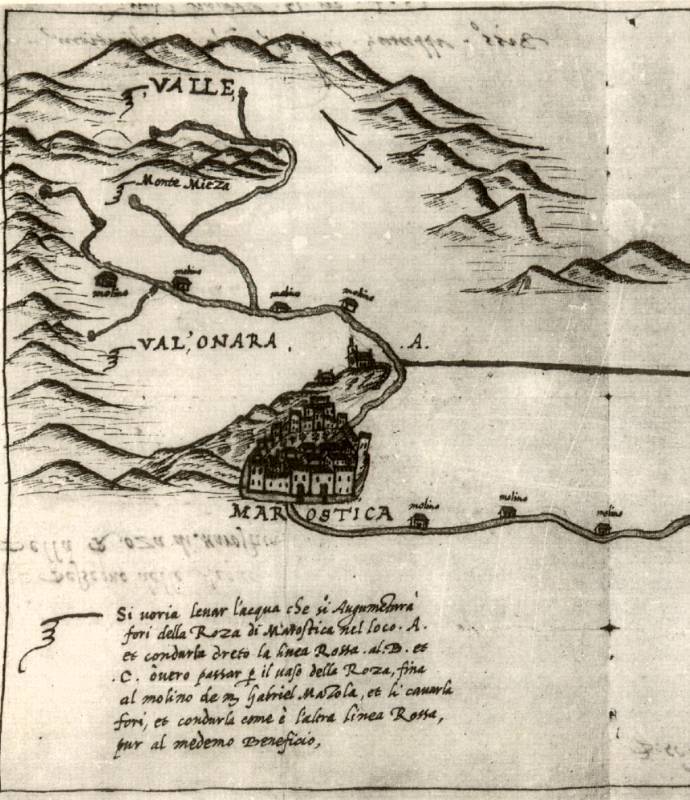 VALLE
Monte Mieza
molino
molino
molino
molino
VAL'ONARA
.A.
MAROSTICA
molino
molino
molino
Si uoria leuar l'acqua che si Augumetarà
fori della Roza di Marostica nel loco .A.
et condurla dreto la linea Rossa .al .B. et
.C. ouero passar p il uaso della Roza, fina
al molino de Gabriel Mazola, et li cauarla
fori, et condurla come è l'altra linea Rossa,
pur al medemo Beneficio,